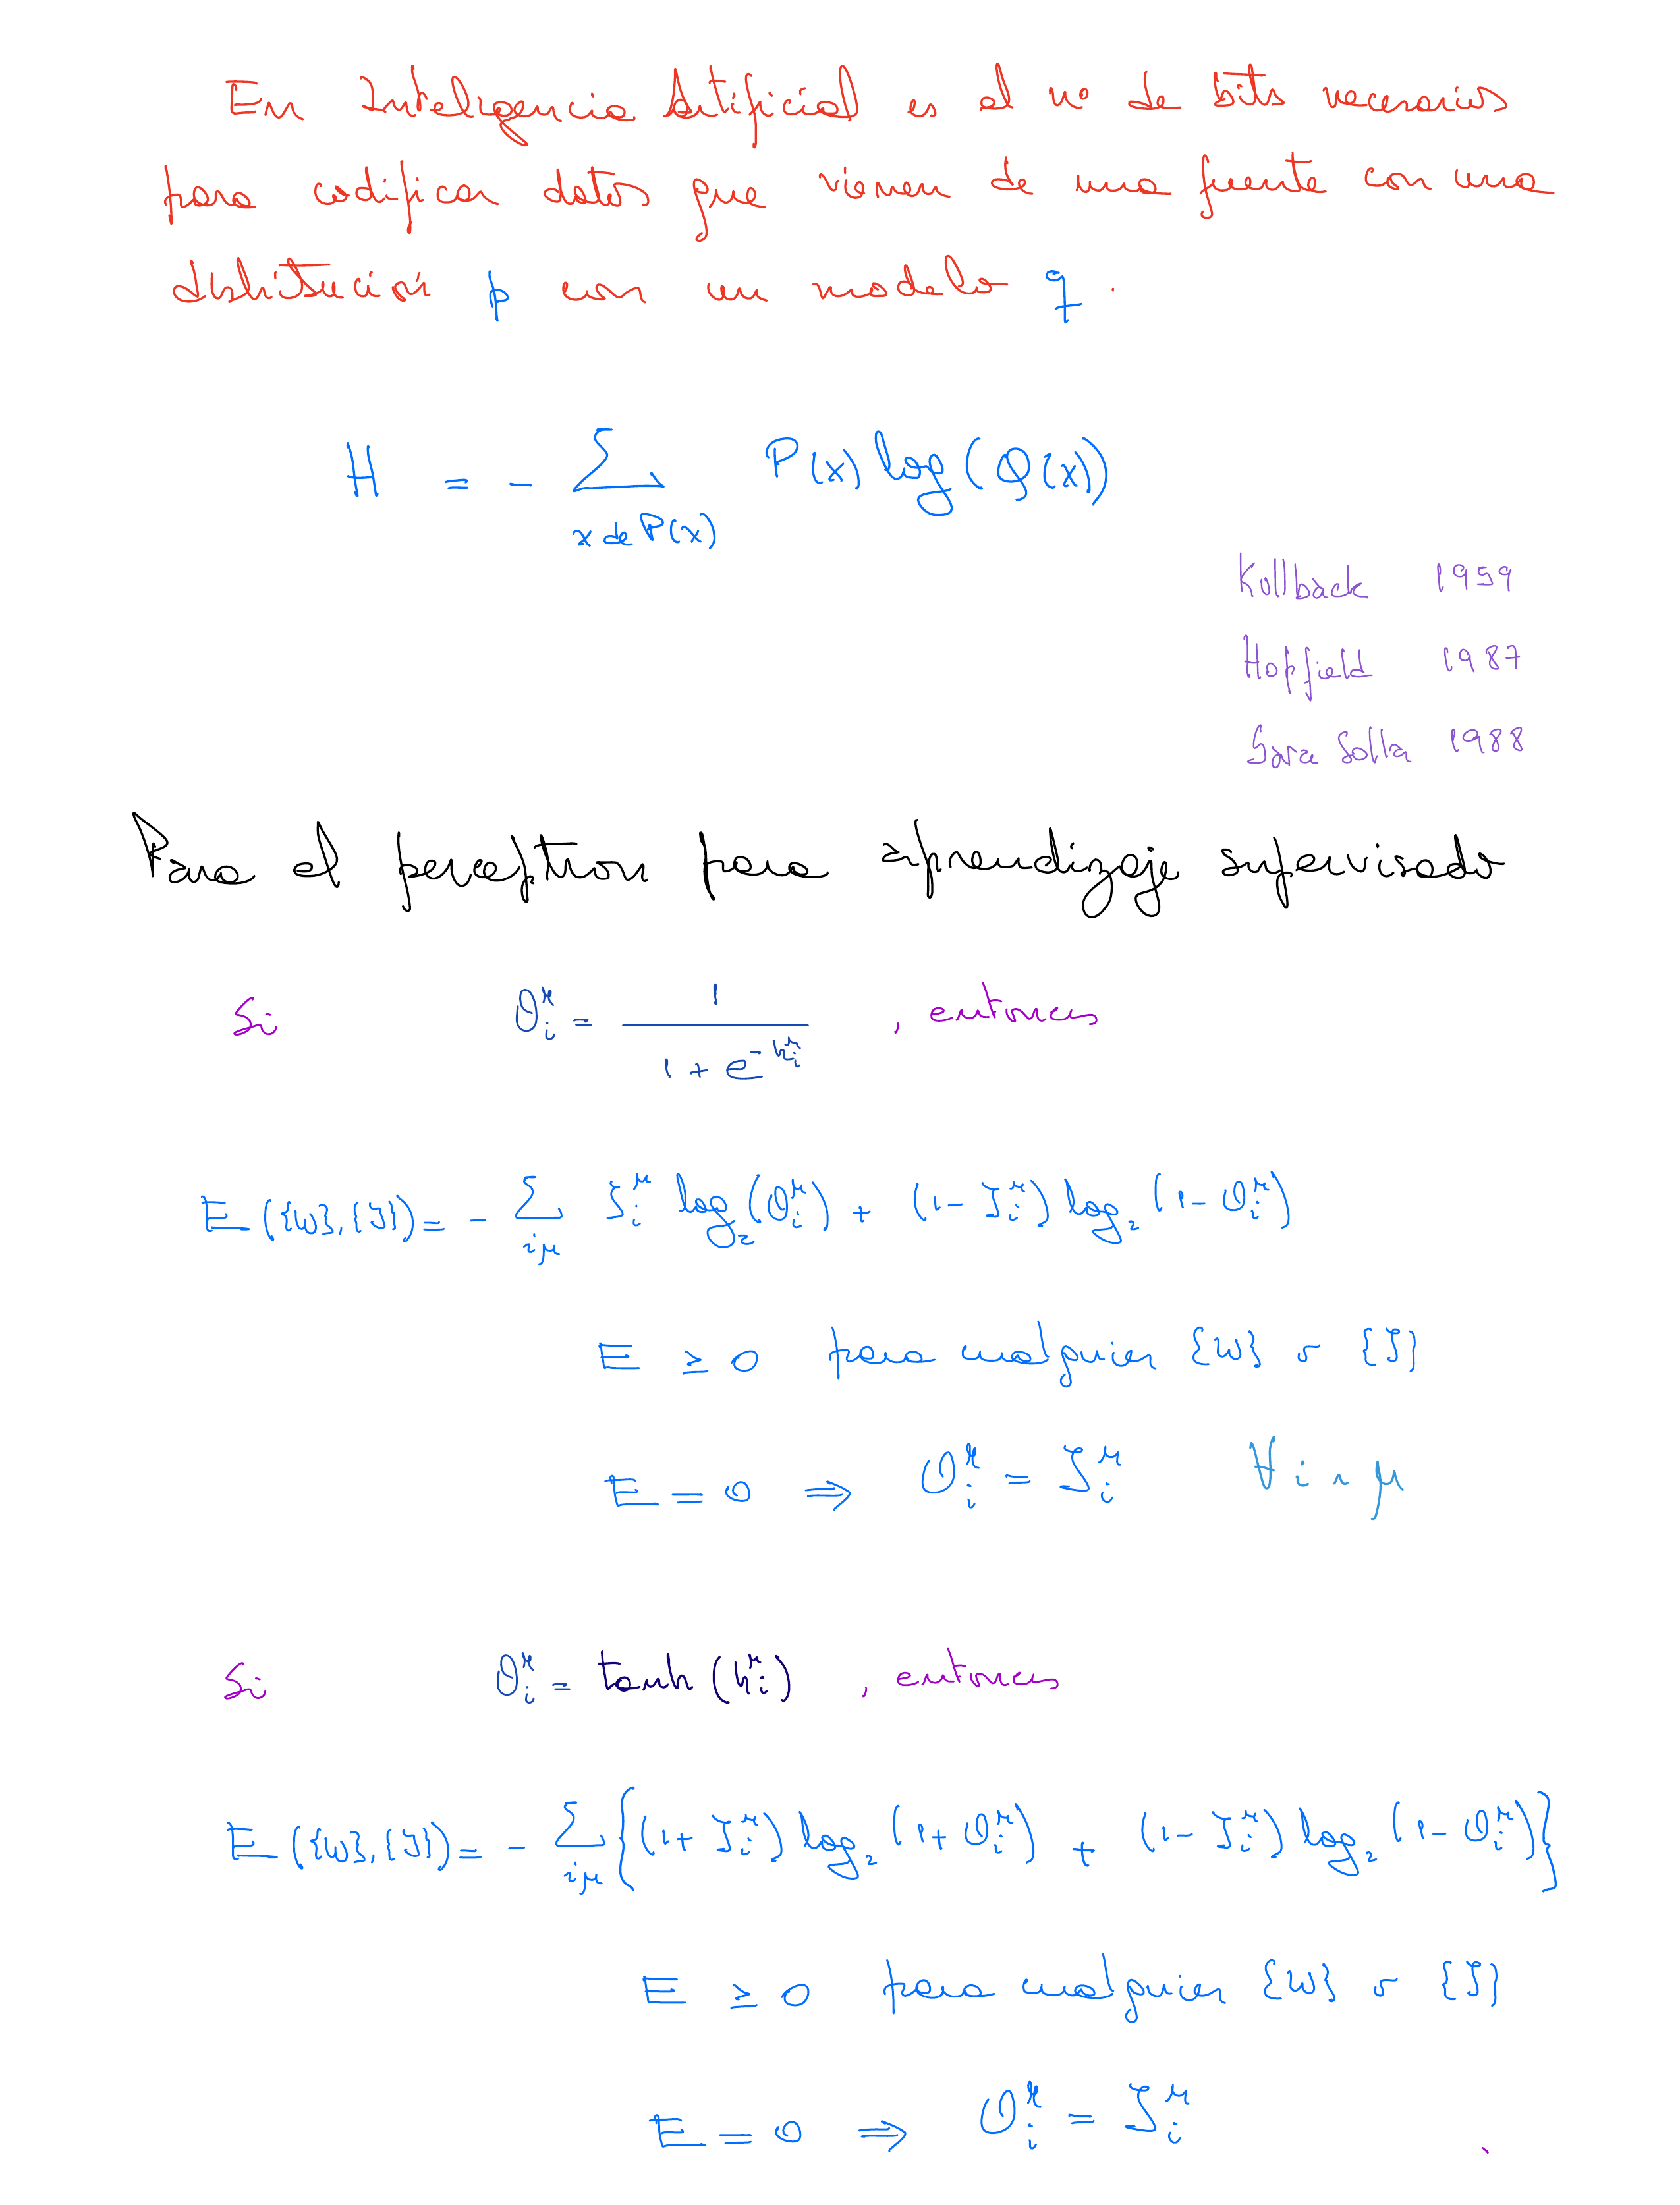 En Inteligencia Artificial es el nº de bits necesarios
para codificar datos que vienen de una fuente con una
distribución p con un modelo q.
H = - Σ P(x) log(Q(x))
x de P(x)
Kullback 1959
Hopfield 1987
Sara Solla 1988
Para el perceptron para aprendizaje supervisado
Si O_i^μ = 1 / (1 + e^{-h_i^μ}) , entonces
E({w},{ζ}) = - Σ_{iμ} ζ_i^μ log_2(O_i^μ) + (1 - ζ_i^μ) log_2(1 - O_i^μ)
E ≥ 0 para cualquier {w} o {ζ}
E = 0 ⇒ O_i^μ = ζ_i^μ ∀ i ~ μ
Si O_i^μ = tanh(h_i^μ) , entonces
E({w},{ζ}) = - Σ_{iμ} {(1 + ζ_i^μ) log_2(1 + O_i^μ) + (1 - ζ_i^μ) log_2(1 - O_i^μ)}
E ≥ 0 para cualquier {w} o {ζ}
E = 0 ⇒ O_i^μ = ζ_i^μ